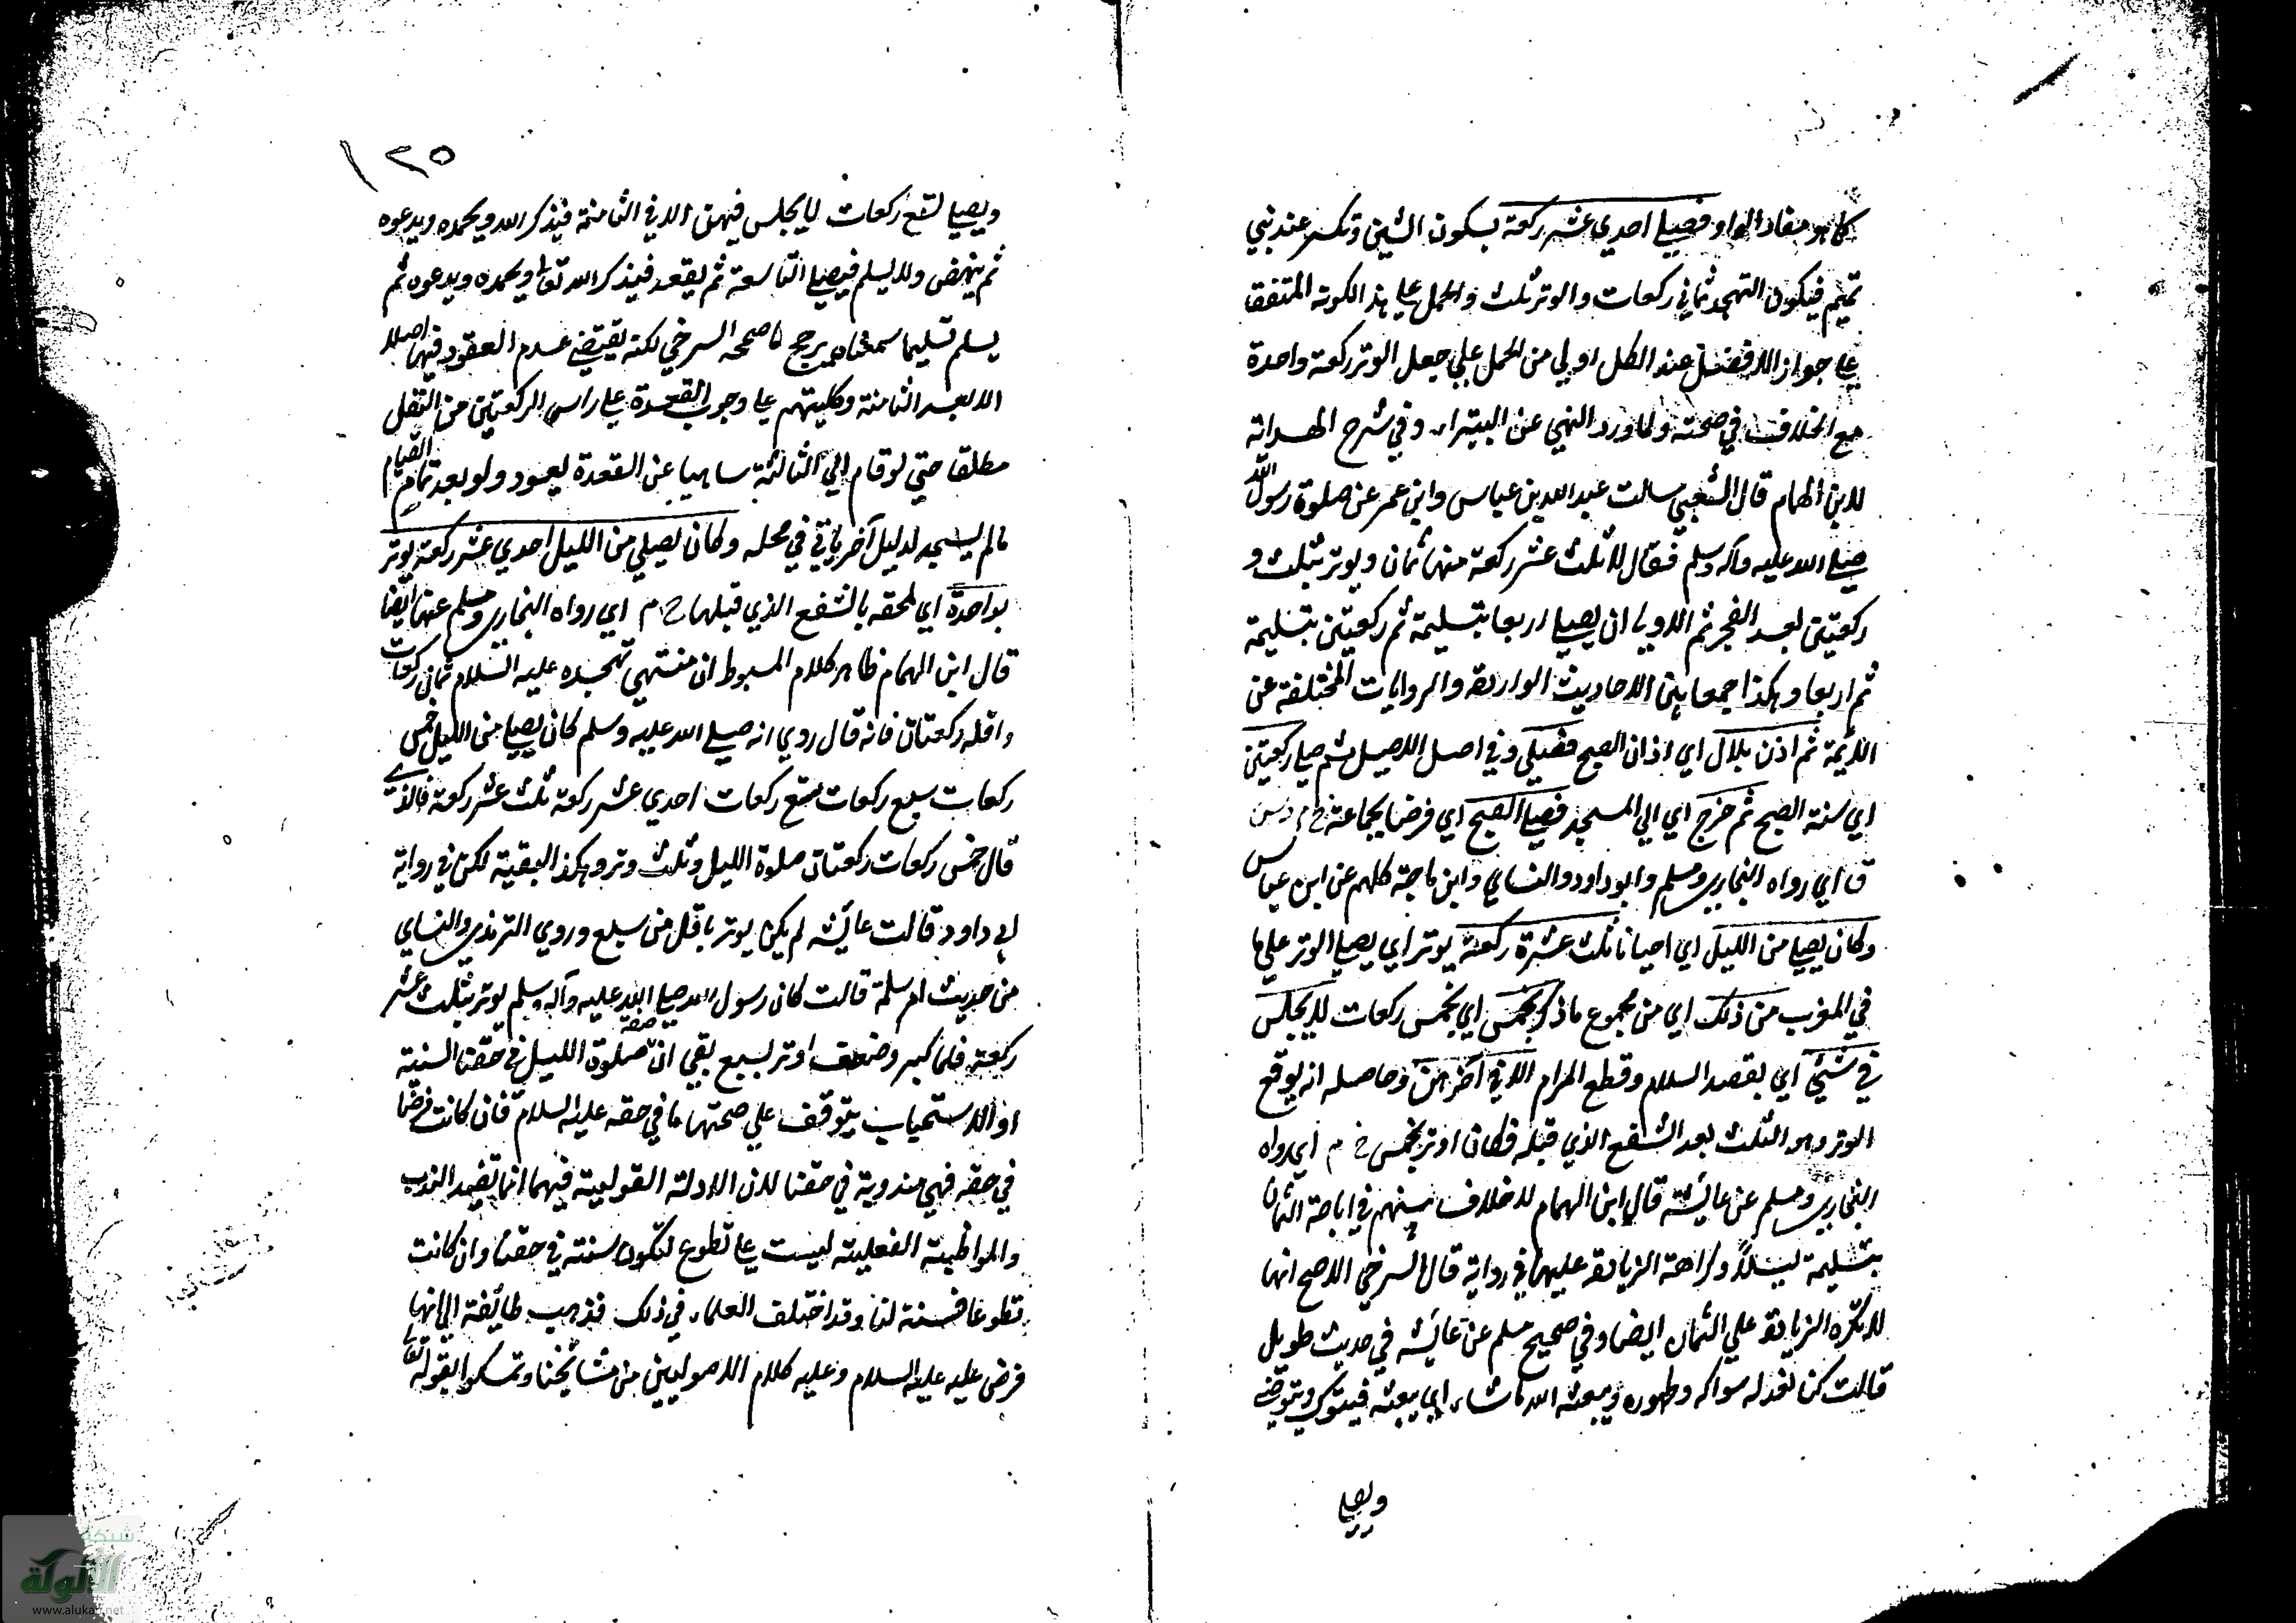 كما هو مفاد الواو فصلي احدي عشر ركعة بسكون الشين وتكسر عند بني
تميم فيكون التهجد ثماني ركعات والوتر ثلث والحمل علي هذا لكونه المتفق
علي جوازه الافضل عند الكل اولي من الحمل علي جعل الوتر ركعة واحدة
مع الخلاف في صحته ولما ورد النهي عن البتيراء وفي شرح الهداية
لابن الهمام قال الشعبي سالت عبد الله بن عباس وابن عمر عن صلوة رسول الله
صلي الله عليه وآله وسلم فقالا ثلث عشر ركعة منها ثمان ويوتر بثلث و
ركعتين بعد الفجر ثم الاولي ان يصلي اربعا بتسليمة ثم ركعتين بتسليمة
ثم اربعا وهكذا جمعا بين الاحاديث الواردة والروايات المختلفة عن
الائمة ثم اذن بلال اي اذان الصبح فصلي وفي اصل الاصيل ثم صلي ركعتين
اي سنة الصبح ثم خرج اي الي المسجد فصلي الصبح اي فرضا بجماعة خ م د س
ق اي رواه البخاري ومسلم وابو داود والنساي وابن ماجة كلهم عن ابن عباس
وكان يصلي من الليل اي احيانا ثلث عشرة ركعة يوتر اي يصلي الوتر علي ما
في المغرب من ذلك اي من مجموع ما ذكر بخمس اي بخمس ركعات لا يجلس
في شيئ اي بقصد السلام وقطع المرام الا في آخرهن وحاصله انه يوقع
الوتر وهو الثلث بعد الشفع الذي قبله فكان اوتر بخمس خ م اي رواه
البخاري ومسلم عن عايشة قال ابن الهمام لا خلاف بينهم في اباحة الثمان
بتسليمة ليلا وكراهة الزيادة عليها في رواية قال السرخي الاصح انها
لا تكره الزيادة علي الثمان ايضا وفي صحيح مسلم عن عايشه في حديث طويل
قالت كنا نعد له سواكه وطهوره ويبعثه الله ما شاء ان يبعثه فيتسوك ويتوضي
ويصلي
١٢٥
ويصلي تسع ركعات لا يجلس فيهن الا في الثامنة فيذكر الله ويحمده ويدعوه
ثم ينهض ولا يسلم فيصلي التاسعة ثم يقعد فيذكر الله تعالي ويحمده ويدعوه ثم
يسلم تسليما سمعناه يرجح ما صححه السرخي لكنه يقتضي عدم القعود فيها اصلا
الا بعد الثامنة وكلمتهم علي وجوب القعدة علي راس الركعتين من النفل
مطلقا حتي لو قام الي الثالثة ساهيا عن القعدة يعود ولو بعد تمام القيام
ما لم يسجد لدليل آخر ياتي في محله وكان يصلي من الليل احدي عشر ركعة يوتر
بواحدة اي ملحقه بالشفع الذي قبلها خ م اي رواه البخاري ومسلم عنها ايضا
قال ابن الهمام ظاهر كلام المبسوط ان منتهي تهجده عليه السلام ثمان ركعات
واقله ركعتان فانه قال روي انه صلي الله عليه وسلم كان يصلي من الليل خمس
ركعات سبع ركعات تسع ركعات احدي عشر ركعة ثلث عشر ركعة فالذي
قال خمس ركعات ركعتان صلوة الليل وثلث وتر وهكذا البقية لكن في رواية
ابي داود قالت عايشه لم يكن يوتر باقل من سبع وروي الترمذي والنساي
من حديث ام سلمة قالت كان رسول الله صلي الله عليه وآله وسلم يوتر بثلث عشر
ركعة فلما كبر وضعف اوتر بسبع بقي ان صفة صلوة الليل في حقنا السنة
او الاستحباب يتوقف علي صحتها ما في حقه عليه السلام فان كانت فرضا
في حقه فهي مندوبة في حقنا لان الادلة القولية فيهما انما تفيد الندب
والمواظبة الفعلية ليست علي تطوع لتكون سنته في حقنا وان كانت
تطوعا فسنة لنا وقد اختلف العلماء في ذلك فذهب طائفة الي انها
فرض عليه عليه السلام وعليه كلام الاصوليين من مشائخنا وتمسكوا بقوله تعالي
شبكة
الألوكة
www.alukah.net